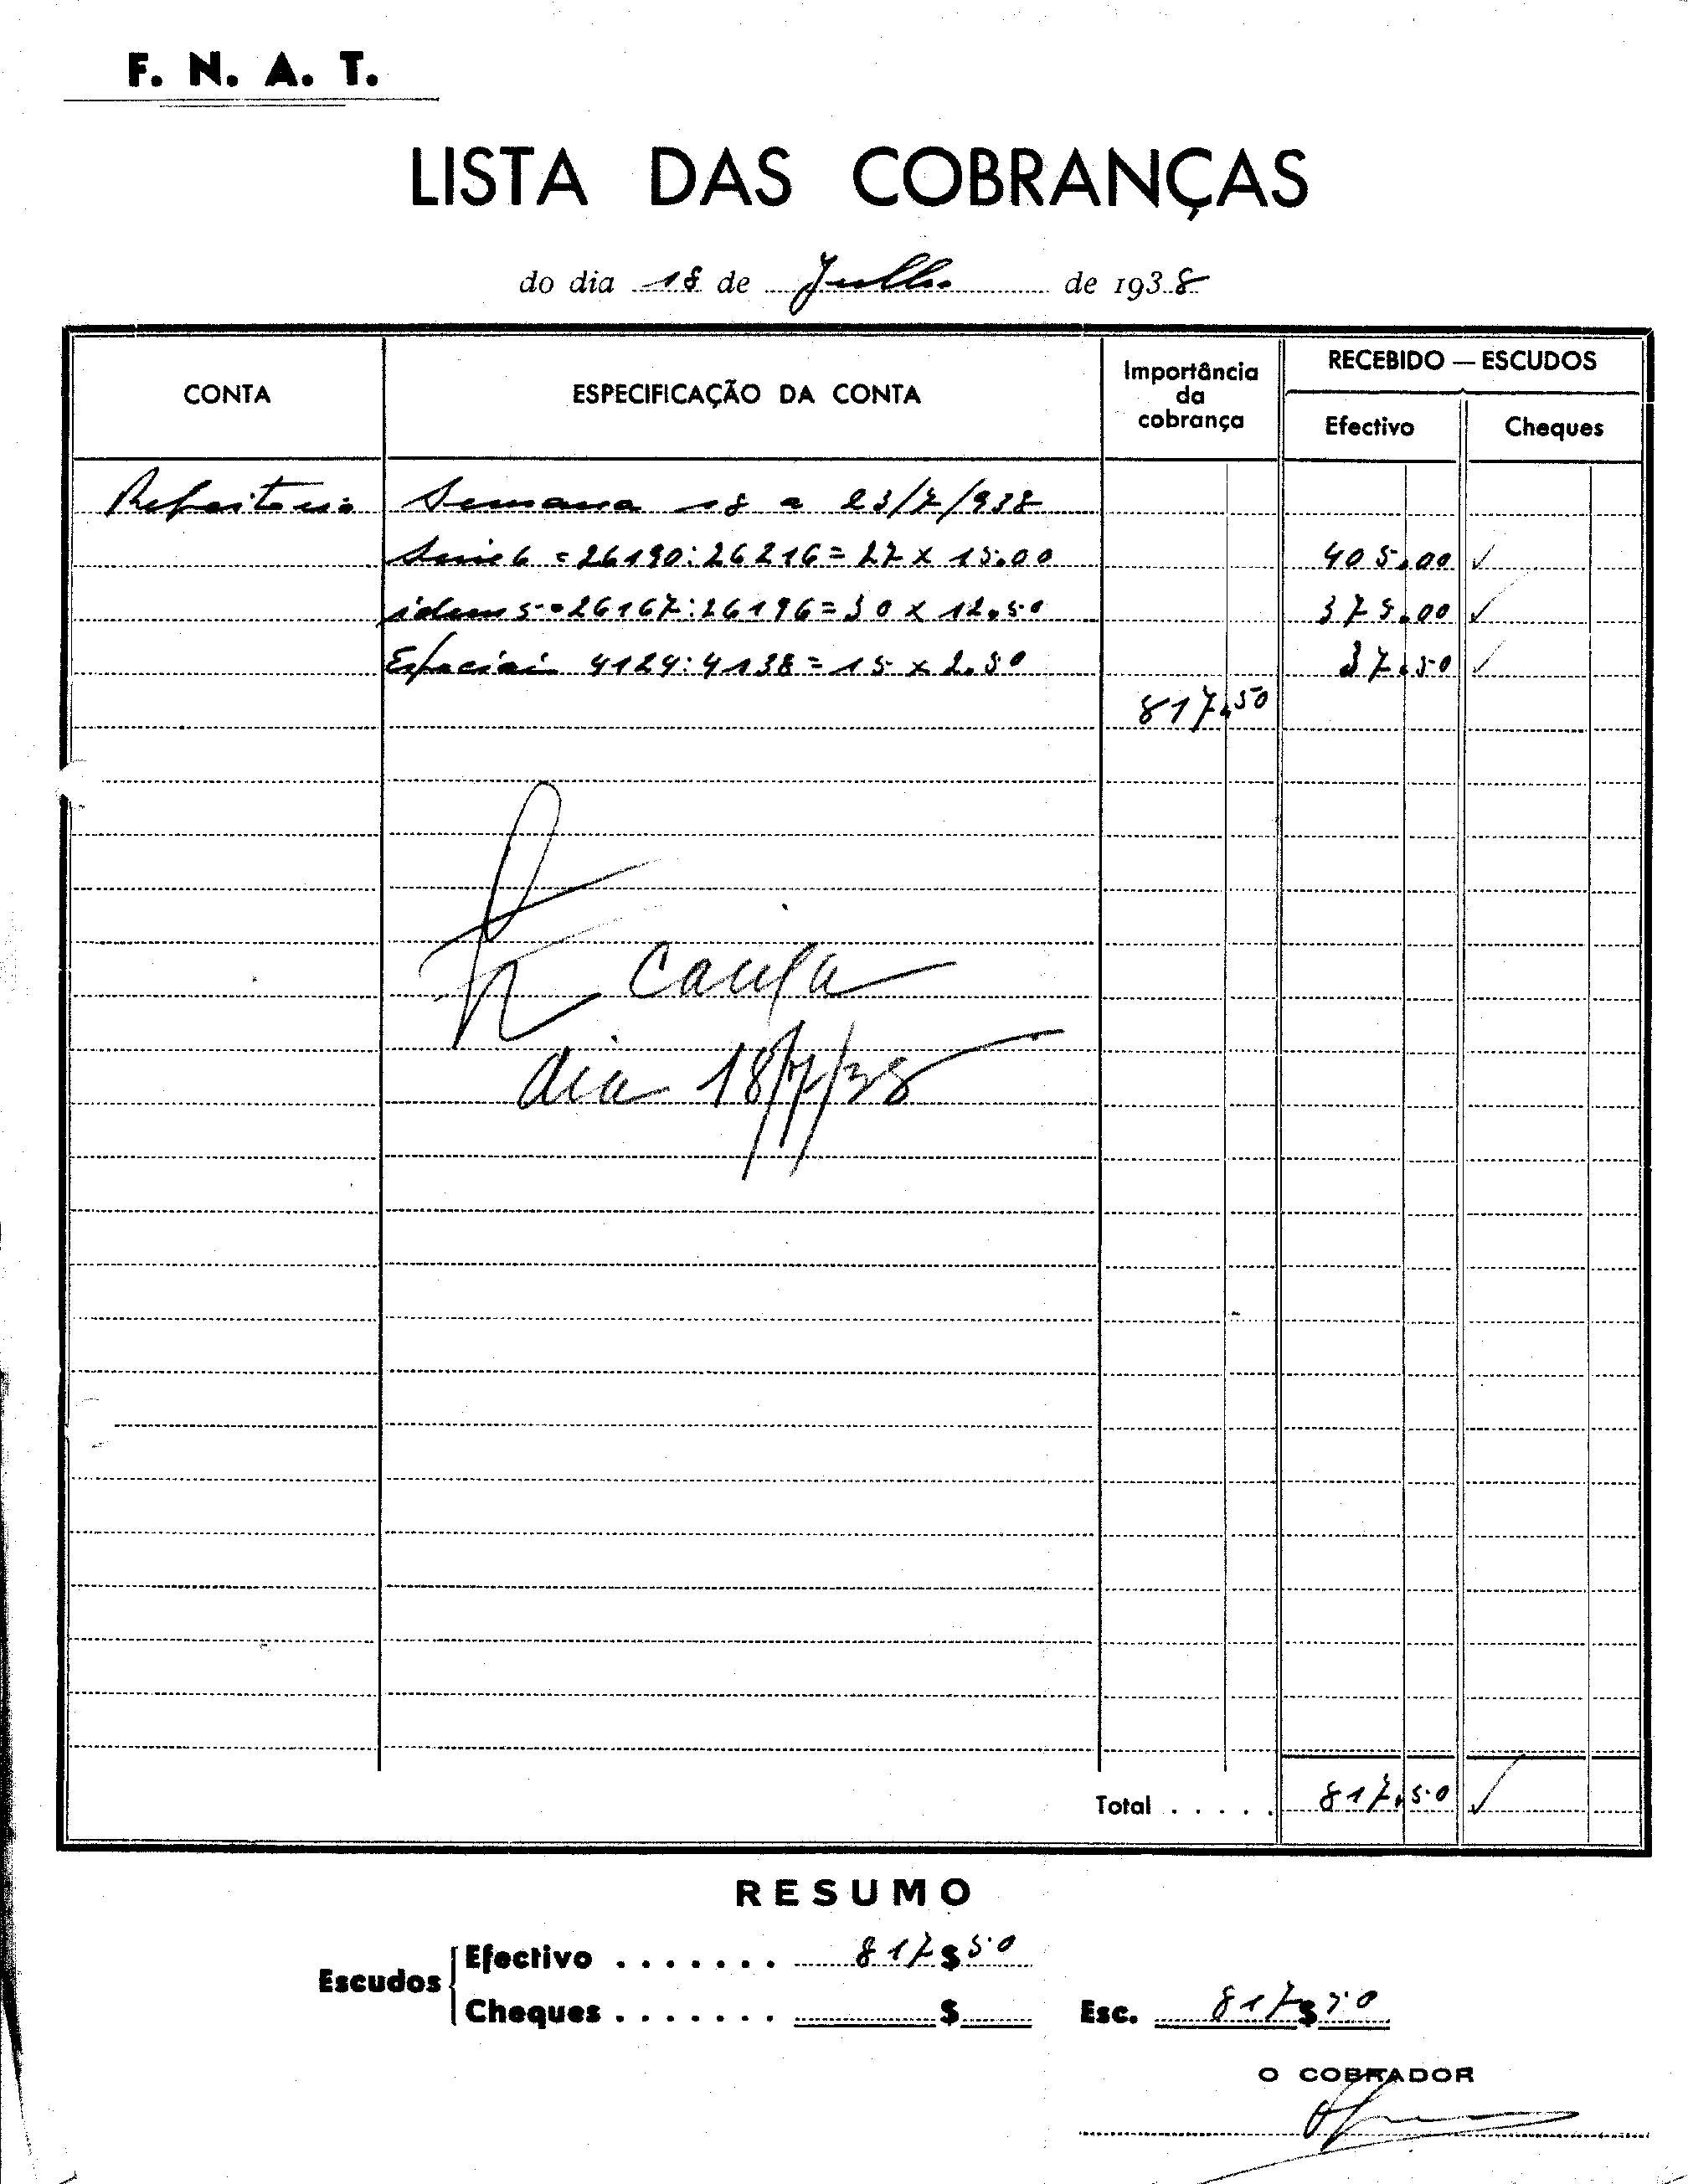 F. N. A. T.
LISTA DAS COBRANÇAS
do dia 18 de Julho de 1938
CONTA
ESPECIFICAÇÃO DA CONTA
Importância da cobrança
RECEBIDO — ESCUDOS
Efectivo
Cheques
Refeitorio Semana 18 a 23/7/938
Serie 6 = 26190:26216 = 27 x 15.00 405.00 ✓
idem 5 = 26167:26196 = 30 x 12.50 375.00 ✓
Especiai 4124:4138 = 15 x 2.50 37.50 ✓
817.50
caixa
dia 18/7/38
Total . . . . . 817.50 ✓
RESUMO
Escudos
Efectivo . . . . . . . 817$50
Cheques . . . . . . . $
Esc. 817$50
O COBRADOR